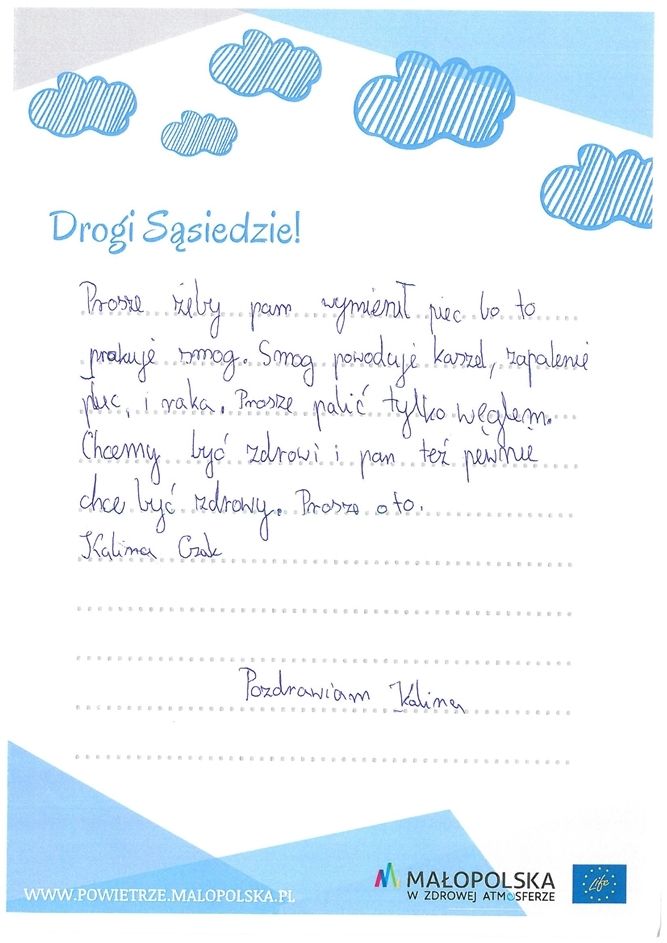 Drogi Sąsiedzie!
Prosze żeby pam wymienił piec bo to
prokuje smog. Smog powoduje kaszel, zapalenie
płuc, i raka. Prosze palić tylko węglem.
Chcemy być zdrowi i pan też pewnie
chce być zdrowy. Prosze o to.
Kalina Czak
Pozdrawiam Kalina
WWW.POWIETRZE.MALOPOLSKA.PL
MAŁOPOLSKA
W ZDROWEJ ATMOSFERZE
Life